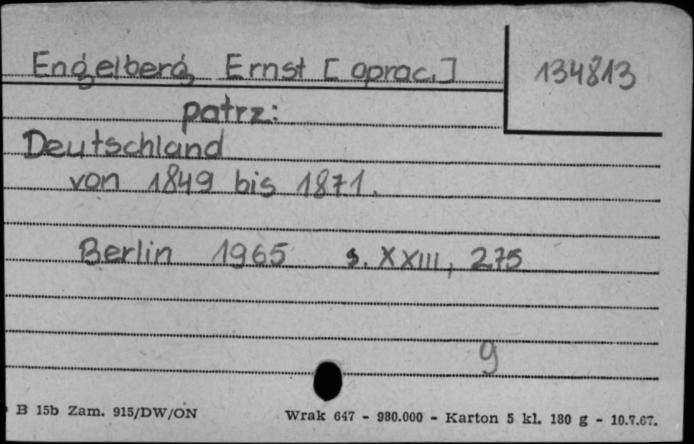 Engelberg, Ernst [oprac.]
134813
patrz:
Deutschland
von 1849 bis 1871.
Berlin 1965 s. XXIII, 275
9
B 15b Zam. 915/DW/ON
Wrak 647 - 980.000 - Karton 5 kl. 180 g - 10.7.67.